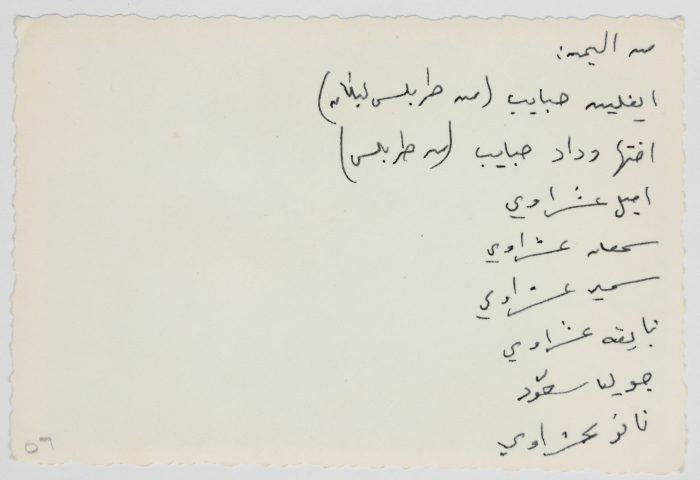 من اليمين:
ايفلين حبايب (من طرابلس لبنان)
اختها وداد حبايب (من طرابلس)
اميل عشراوي
سمعان عشراوي
سمير عشراوي
نايفه عشراوي
جوليا سعّود
فائز عشراوي